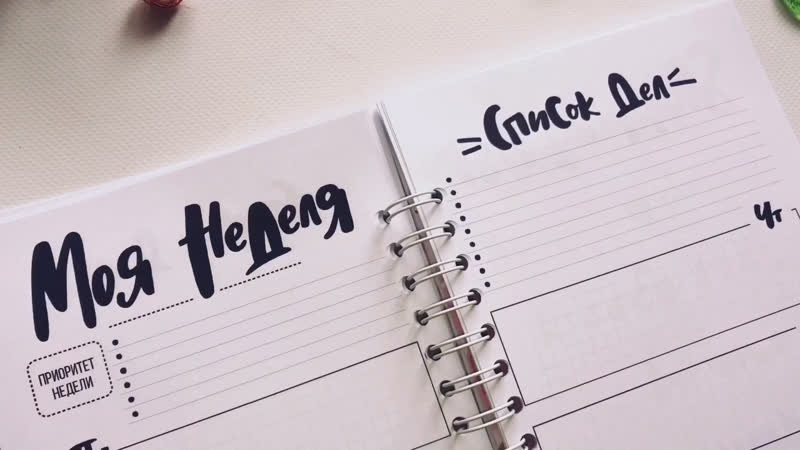 Моя Неделя
ПРИОРИТЕТ
НЕДЕЛИ
Список Дел
Чт